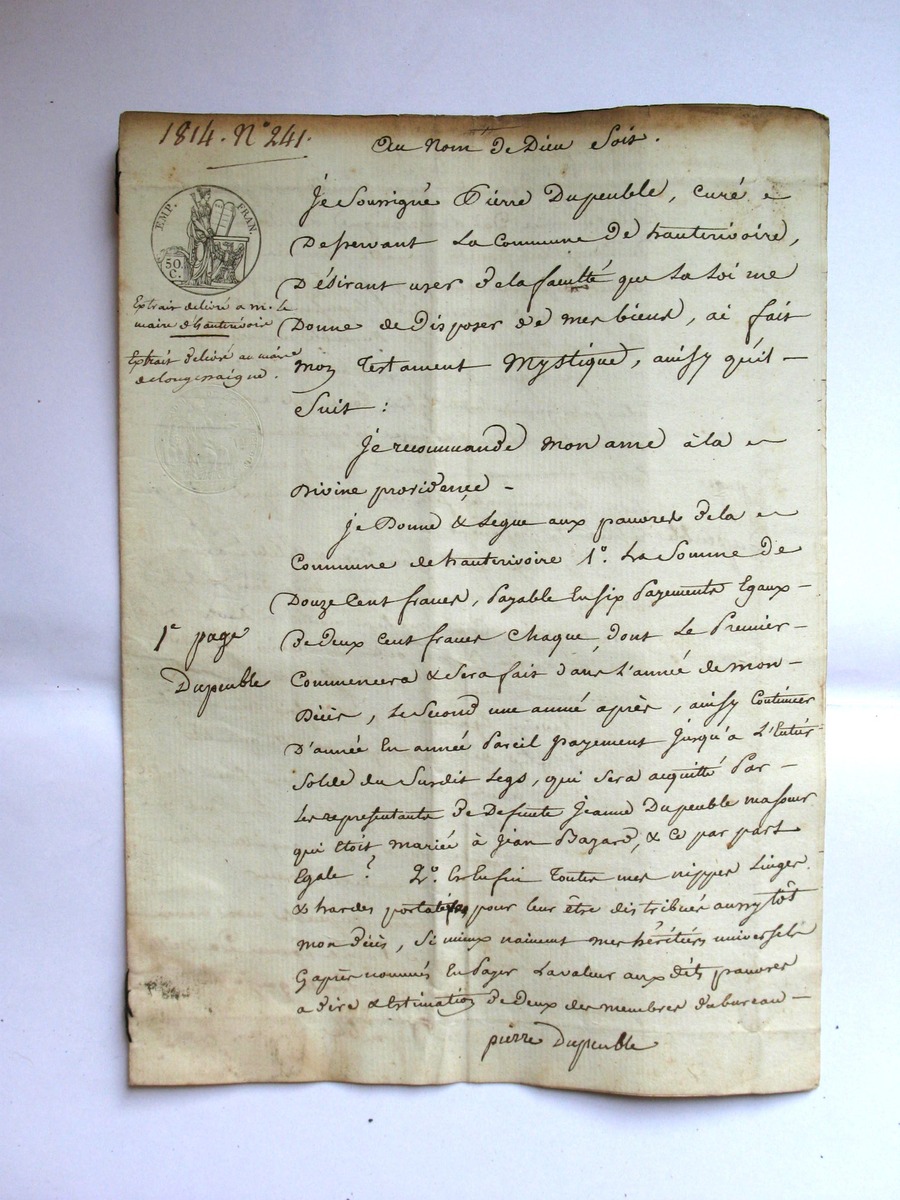 1814. N° 241.
Au Nom de Dieu Soit.
EMP. FRAN.
50
C.
Extrait delivré a mr. Le
maire d'hauterivoire
Extrait delivré au maire
de longessaigne.
Je Soussigné Pierre Dupeuble, curé e
Desservant La Commune De hauterivoire,
Désirant user de la faculté que La Loi me
Donne de disposer de mes biens, ai fait
mon Testament Mystique, ainsy qu'il –
Suit :
Je recommande mon ame à la
Divine providence –
Je Donne & Legue aux pauvres de la
Commune de hauterivoire 1°. La Somme de
Douze Cent francs, Payable En six Payements Egaux –
de deux Cent francs Chaque, dont Le Premier –
Commencera & Sera fait dans L'année de mon –
Décès, Le Second une année après, ainsy Continuer
D'année En année Pareil payement Jusqu'a L'Entier
Solde du Susdit Legs, qui Sera acquitté Par –
Les représentants de Defunte Jeanne Dupeuble ma Sœur
qui Etoit mariée à Jean Bazard, & Ce par part
Egale ? 2°. Et Enfin Toutes mes nippes Linges
& hardes portatifs pour leur être distribués aussytôt
mon décès, Si mieux naiment mes héritiers universels
Cy après nommés En Payer La valeur aux dits pauvres
a dire & Estimation de deux des membres du bureau –
1e page
Dupeuble
pierre Dupeuble